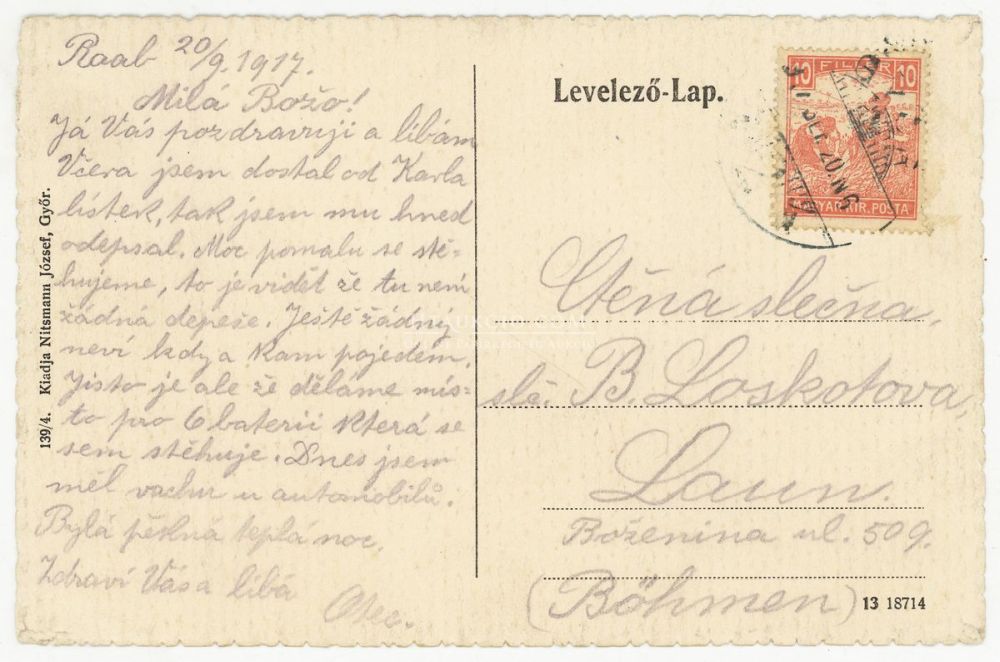 Raab 20/9.1917.
Milá Božo!
Já Vás pozdravuji a líbám
Včera jsem dostal od Karla
lístek, tak jsem mu hned
odepsal. Moc pomalu se stě-
hujeme, to je vidět že tu není
žádná depeše. Ještě žádný
neví kdy a kam pojedem.
Jisto je ale že děláme mís-
to pro 6 baterii která se
sem stěhuje. Dnes jsem
měl vachu u automobilů.
Bylá pěkná teplá noc.
Zdraví Vás a líbá
Otec.
139/4. Kiadja Nitsmann József, Győr.
Levelező-Lap.
10 FILLÉR 10
MAGYAR KIR. POSTA
Ctěná slečna,
slč. B. Loskotova,
Laun.
Boženina ul. 509.
(Böhmen)
13 18714